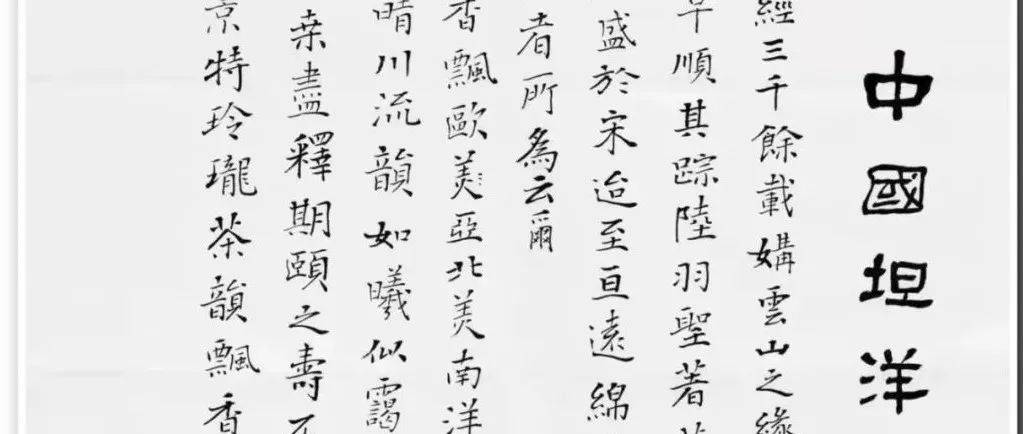 中國坦洋
經三千餘載媾雲山之緣
早順其踪陸羽聖著
盛於宋迨至亘遠綿
者所為云爾
香飄歐美亞北美南洋
晴川流韻如曦似靄
桒盡釋期頤之壽不
京特玲瓏茶韻飄香